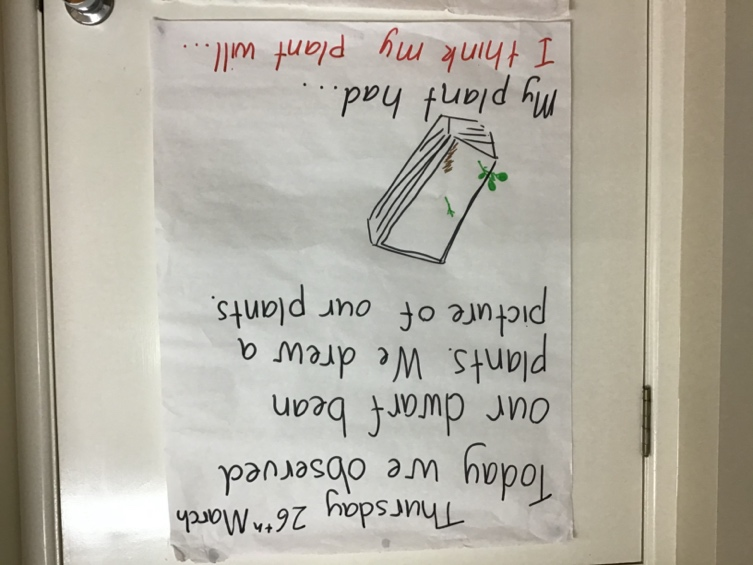 Thursday 26th March
Today we observed
our dwarf bean
plants. We drew a
picture of our plants.
My plant had...
I think my plant will...